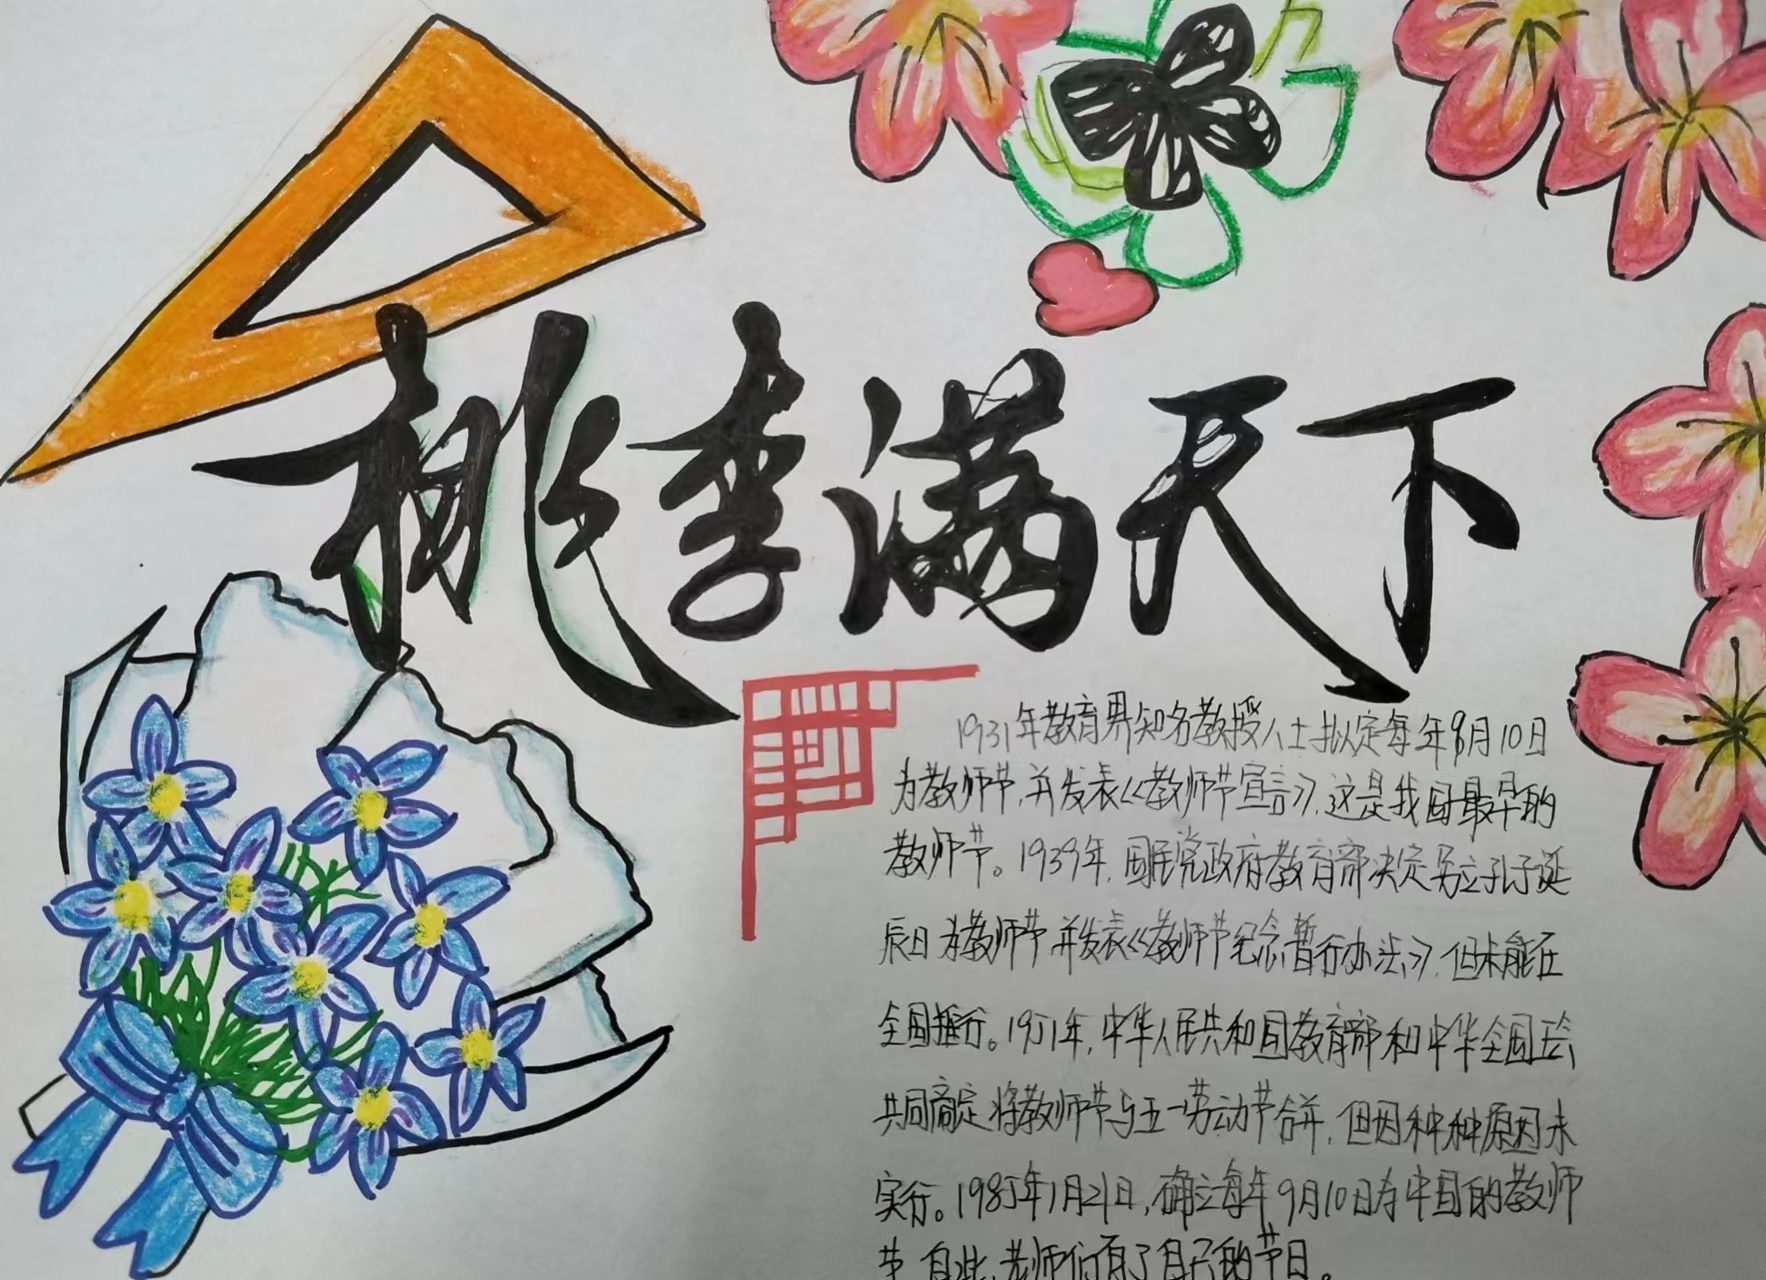 桃李满天下
1931年教育界知名教授人士拟定每年9月10日
为教师节,并发表《教师节宣言》,这是我国最早的
教师节。1939年,国民党政府教育部决定另立孔子诞
辰日为教师节并发表《教师节纪念暂行办法》,但未能在
全国推行。1951年,中华人民共和国教育部和中华全国总
共同商定将教师节与五一劳动节合并,但因种种原因未
实行。1985年1月21日,确立每年9月10日为中国的教师
节 自此,老师们有了自己的节日。